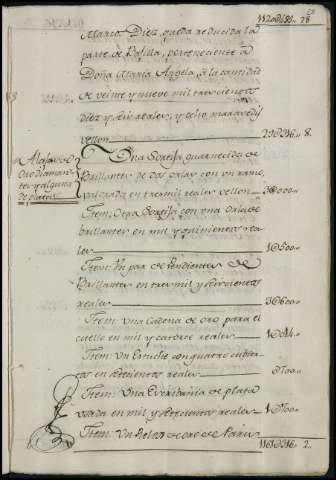 Marco Diez, queda reducida la
parte de Vajilla, perteneciente à
Doña Maria Angela, à la cantidad
de veinte y nueve mil trescientos
diez y seis reales, y ocho maravedis
vellon 29U316.. 8.
Alajas de
Oro diamantes
y alguna
de plata
Una Sortija guarnecida de
Brillantes de dos
valuada en tres mil reales vellon 3U000..
Item: Otra Sortija con una
brillantes en mil y quinientos rea-
les 1U500..
Item: Un par de Pendientes de
Brillantes en tres mil y seiscientos
reales 3U600..
Item: Una Cadena de oro para el
cuello en mil y catorce reales 1U014..
Item: Un Estuche con quatro
en setecientos reales U700..
Item: Una Escribania de plata
en mil y setecientos reales 1U700..
Item: Un Relox de oro de
2.